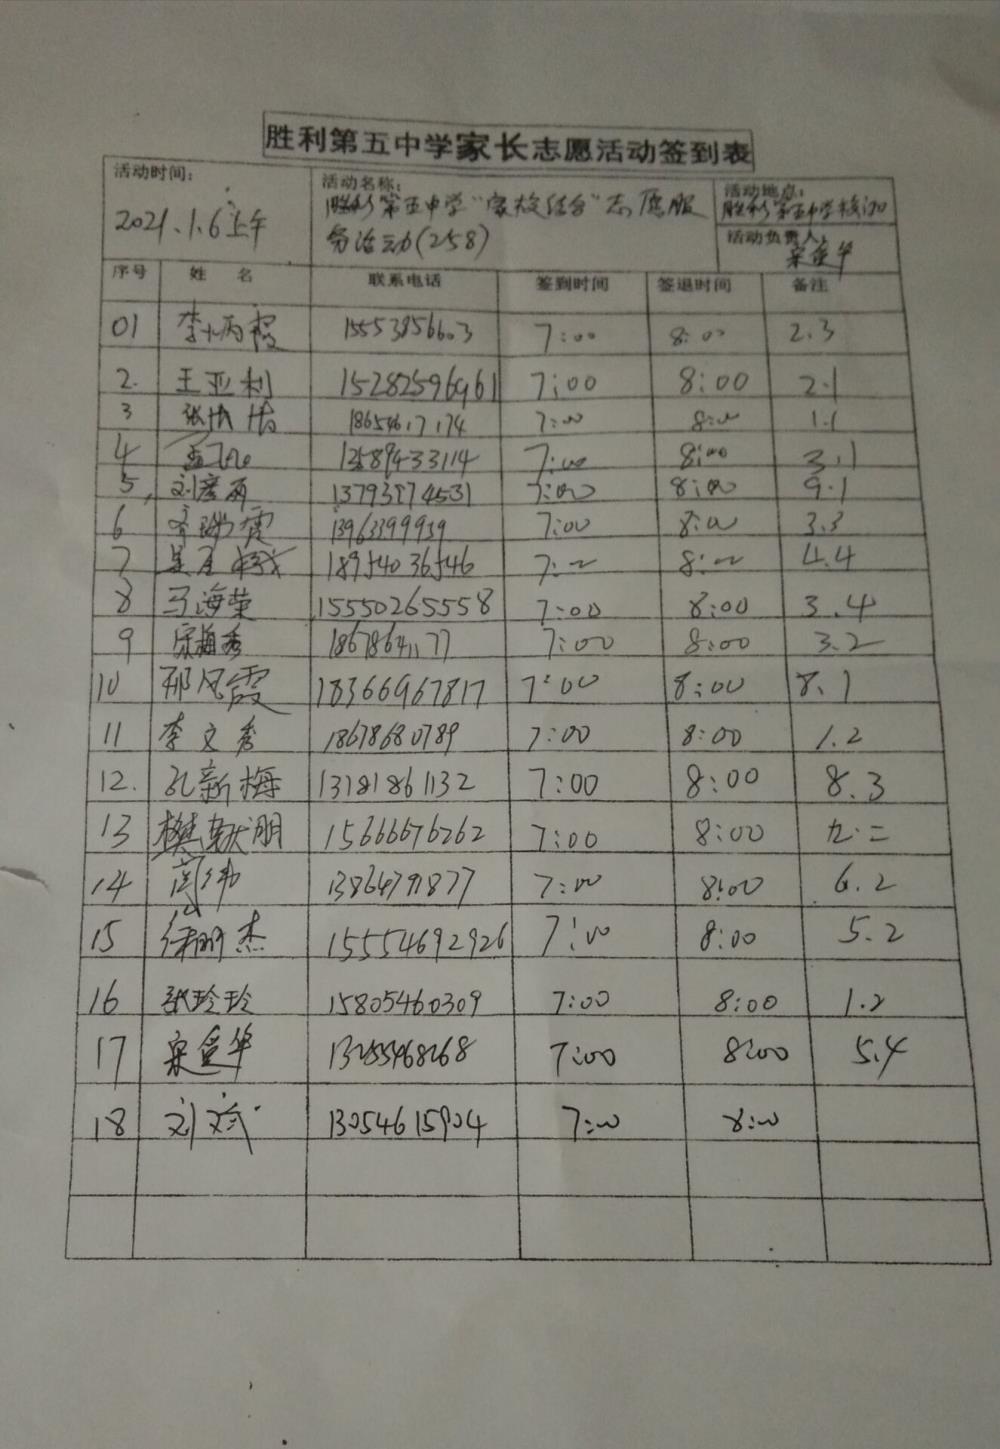 胜利第五中学家长志愿活动签到表
活动时间: 活动名称: 活动地点:
2021.1.6上午 胜利第五中学"家校结合"志愿服 胜利第五中学校门口
务活动(258) 活动负责人:
宋爱华
序号 姓 名 联系电话 签到时间 签退时间 备注
01 李炳霞 15553856603 7:00 8:00 2.3
2. 王亚利 15282596961 7:00 8:00 2.1
3 张 洁 18654617174 7:00 8:00 1.1
4 孟 7:00 8:00 3.1
5, 刘彦丽 13793974531 7:00 8:00 9.1
6 霞 13963399939 7:00 8:00 3.3
7 18954036546 7:00 8:00 4.4
8 马海荣 15550265558 7:00 8:00 3.4
9 宗梅秀 18678641177 7:00 8:00 3.2
10 邢风霞 18366967817 7:00 8:00 8.1
11 李文秀 18678680789 7:00 8:00 1.2
12. 孔新梅 13181861132 7:00 8:00 8.3
13 樊 朋 15666676262 7:00 8:00 九.二
14 13864791877 7:00 8:00 6.2
15 徐丽杰 15554692926 7:00 8:00 5.2
16 张玲玲 15805460309 7:00 8:00 1.2
17 宋爱华 13255468268 7:00 8:00 5.4
18 刘斌 13054615904 7:00 8:00